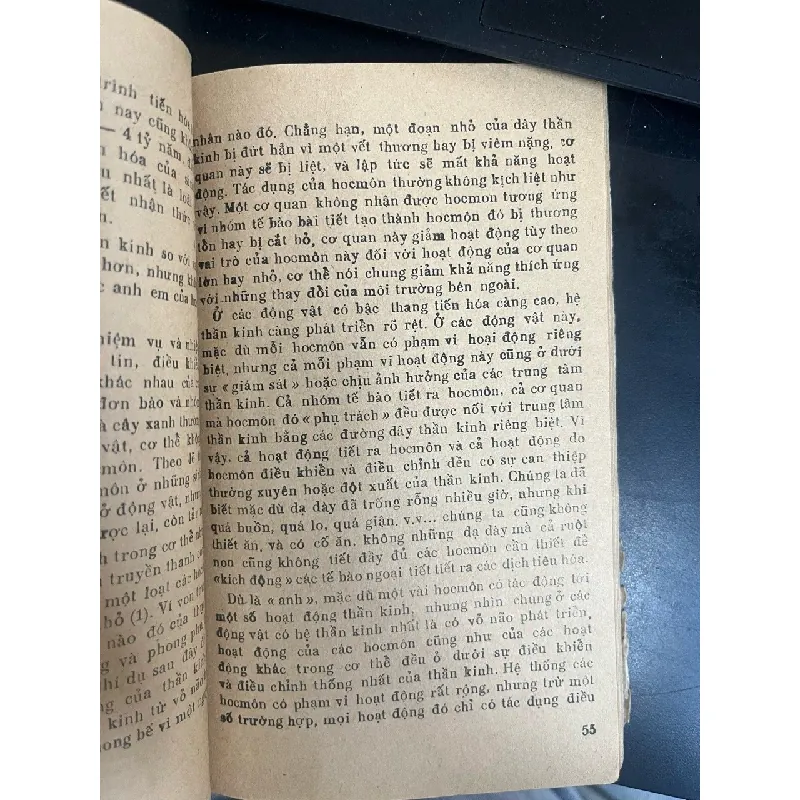 trình tiến hóa
nay cũng
— 4 tỷ năm,
hóa của
nhất là loài
kết nhận thức
kinh so với
hơn, nhưng
anh em của
nhiệm vụ và
tin, điều khiển
khác nhau của
đơn bào và
và cây xanh thường
vật, cơ thể không
môn. Theo
môn ở những
ở động vật,
ược lại, còn
trong cơ thể
truyền thanh
một loạt các
hỏ (1). Ví von
nào đó của
và phong phú
hí dụ sau đây
của thần kinh
kinh từ vỏ não
ong bế vì một
nhân nào đó. Chẳng hạn, một đoạn nhỏ của dây thần
kinh bị đứt hẳn vì một vết thương hay bị viêm nặng, cơ
quan này sẽ bị liệt, và lập tức sẽ mất khả năng hoạt
động. Tác dụng của hocmôn thường không kịch liệt như
vậy. Một cơ quan không nhận được hocmon tương ứng
vì nhóm tế bào bài tiết tạo thành hocmôn đó bị thương
tổn hay bị cắt bỏ, cơ quan này giảm hoạt động tùy theo
vai trò của hocmôn này đối với hoạt động của cơ quan
lớn hay nhỏ, cơ thể nói chung giảm khả năng thích ứng
với những thay đổi của môi trường bên ngoài.
Ở các động vật có bậc thang tiến hóa càng cao, hệ
thần kinh càng phát triển rõ rệt. Ở các động vật này,
mặc dù mỗi hocmôn vẫn có phạm vi hoại động riêng
biệt, nhưng cả mỗi phạm vi hoạt động này cũng ở dưới
sự « giám sát » hoặc chịu ảnh hưởng của các trung tâm
thần kinh. Cả nhóm tế bào tiết ra hocmôn, cả cơ quan
mà hocmôn đó « phụ trách » đều được nối với trung tâm
thần kinh bằng các đường dây thần kinh riêng biệt. Vì
vậy, cả hoạt động tiết ra hocmôn và cả hoạt động do
hocmôn điều khiển và điều chỉnh đều có sự can thiệp
thường xuyên hoặc đột xuất của thần kinh. Chúng ta đã
biết mặc dù dạ dày đã trống rỗng nhiều giờ, nhưng khi
quá buồn, quá lo, quá giận, v.v... chúng ta cũng không
thiết ăn, và có cố ăn, không những dạ dày mà cả ruột
non cũng không tiết đầy đủ các hocmôn cần thiết để
«kích động» các tế bào ngoại tiết tiết ra các dịch tiêu hóa.
Dù là « anh », mặc dù một vài hocmôn có tác động tới
một số hoạt động thần kinh, nhưng nhìn chung ở các
động vật có hệ thần kinh nhất là có vỏ não phát triển,
hoạt động của các hocmôn cũng như của các hoạt
động khác trong cơ thể đều ở dưới sự điều khiển
và điều chỉnh thống nhất của thần kinh. Hệ thống các
hocmôn có phạm vi hoạt động rất rộng, nhưng trừ một
số trường hợp, mọi hoạt động đó chỉ có tác dụng điều
55